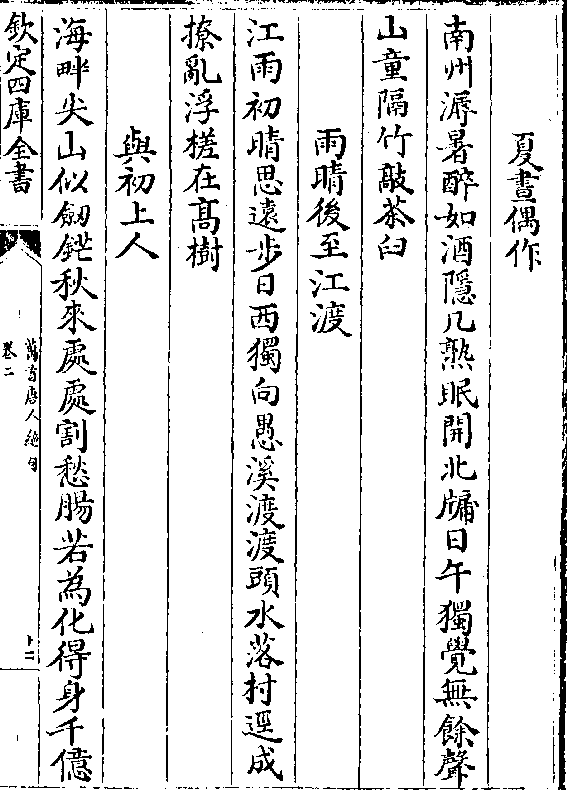 夏晝偶作
南州溽暑醉如酒隱几熟眠開北牖日午獨覺無餘聲
山童隔竹敲茶臼
雨晴後至江渡
江雨初晴思遠步日西獨向愚溪渡渡頭水落村逕成
撩亂浮槎在髙樹
與初上人
海畔尖山似劒鋩秋來處處割愁腸若為化得身千億
欽定四庫全書
萬首唐人絶句
卷二
十二